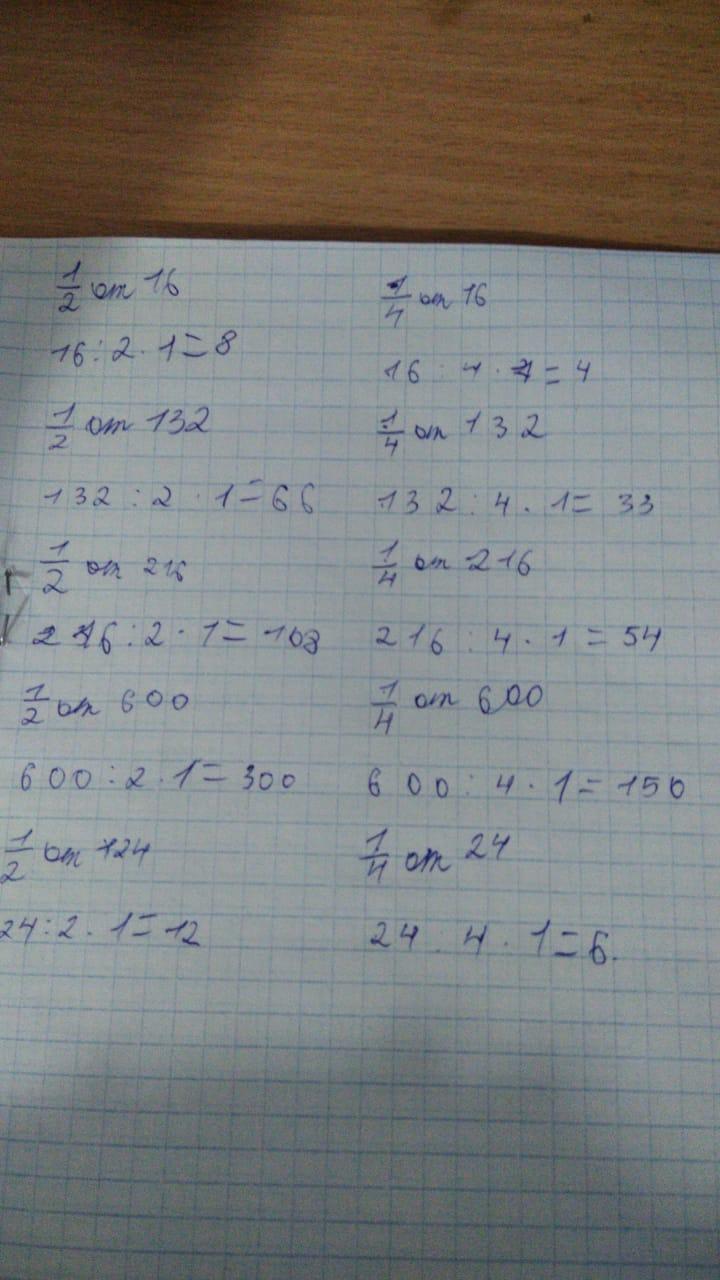 1/2 от 16
16 : 2 · 1 = 8
1/2 от 132
132 : 2 · 1 = 66
1/2 от 216
216 : 2 · 1 = 108
1/2 от 600
600 : 2 · 1 = 300
1/2 от 124
24 : 2 · 1 = 12
1/4 от 16
16 : 4 · 1 = 4
1/4 от 132
132 : 4 · 1 = 33
1/4 от 216
216 : 4 · 1 = 54
1/4 от 600
600 : 4 · 1 = 150
1/4 от 24
24 : 4 · 1 = 6.